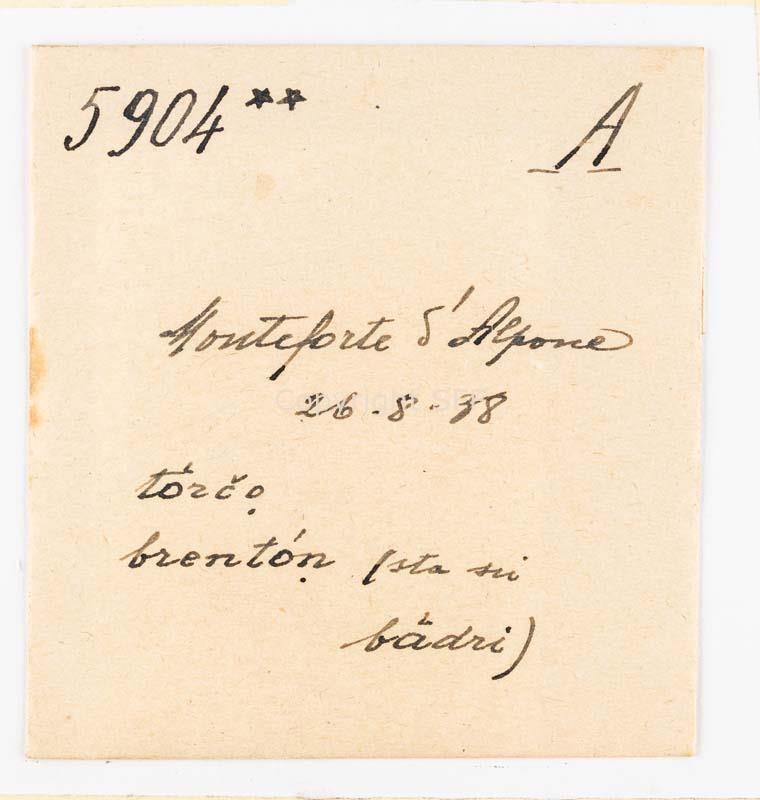 5904** A
Monteforte d'Alpone
26-8-38
tórčọ
brentóṇ (sta sui
bä́dri)